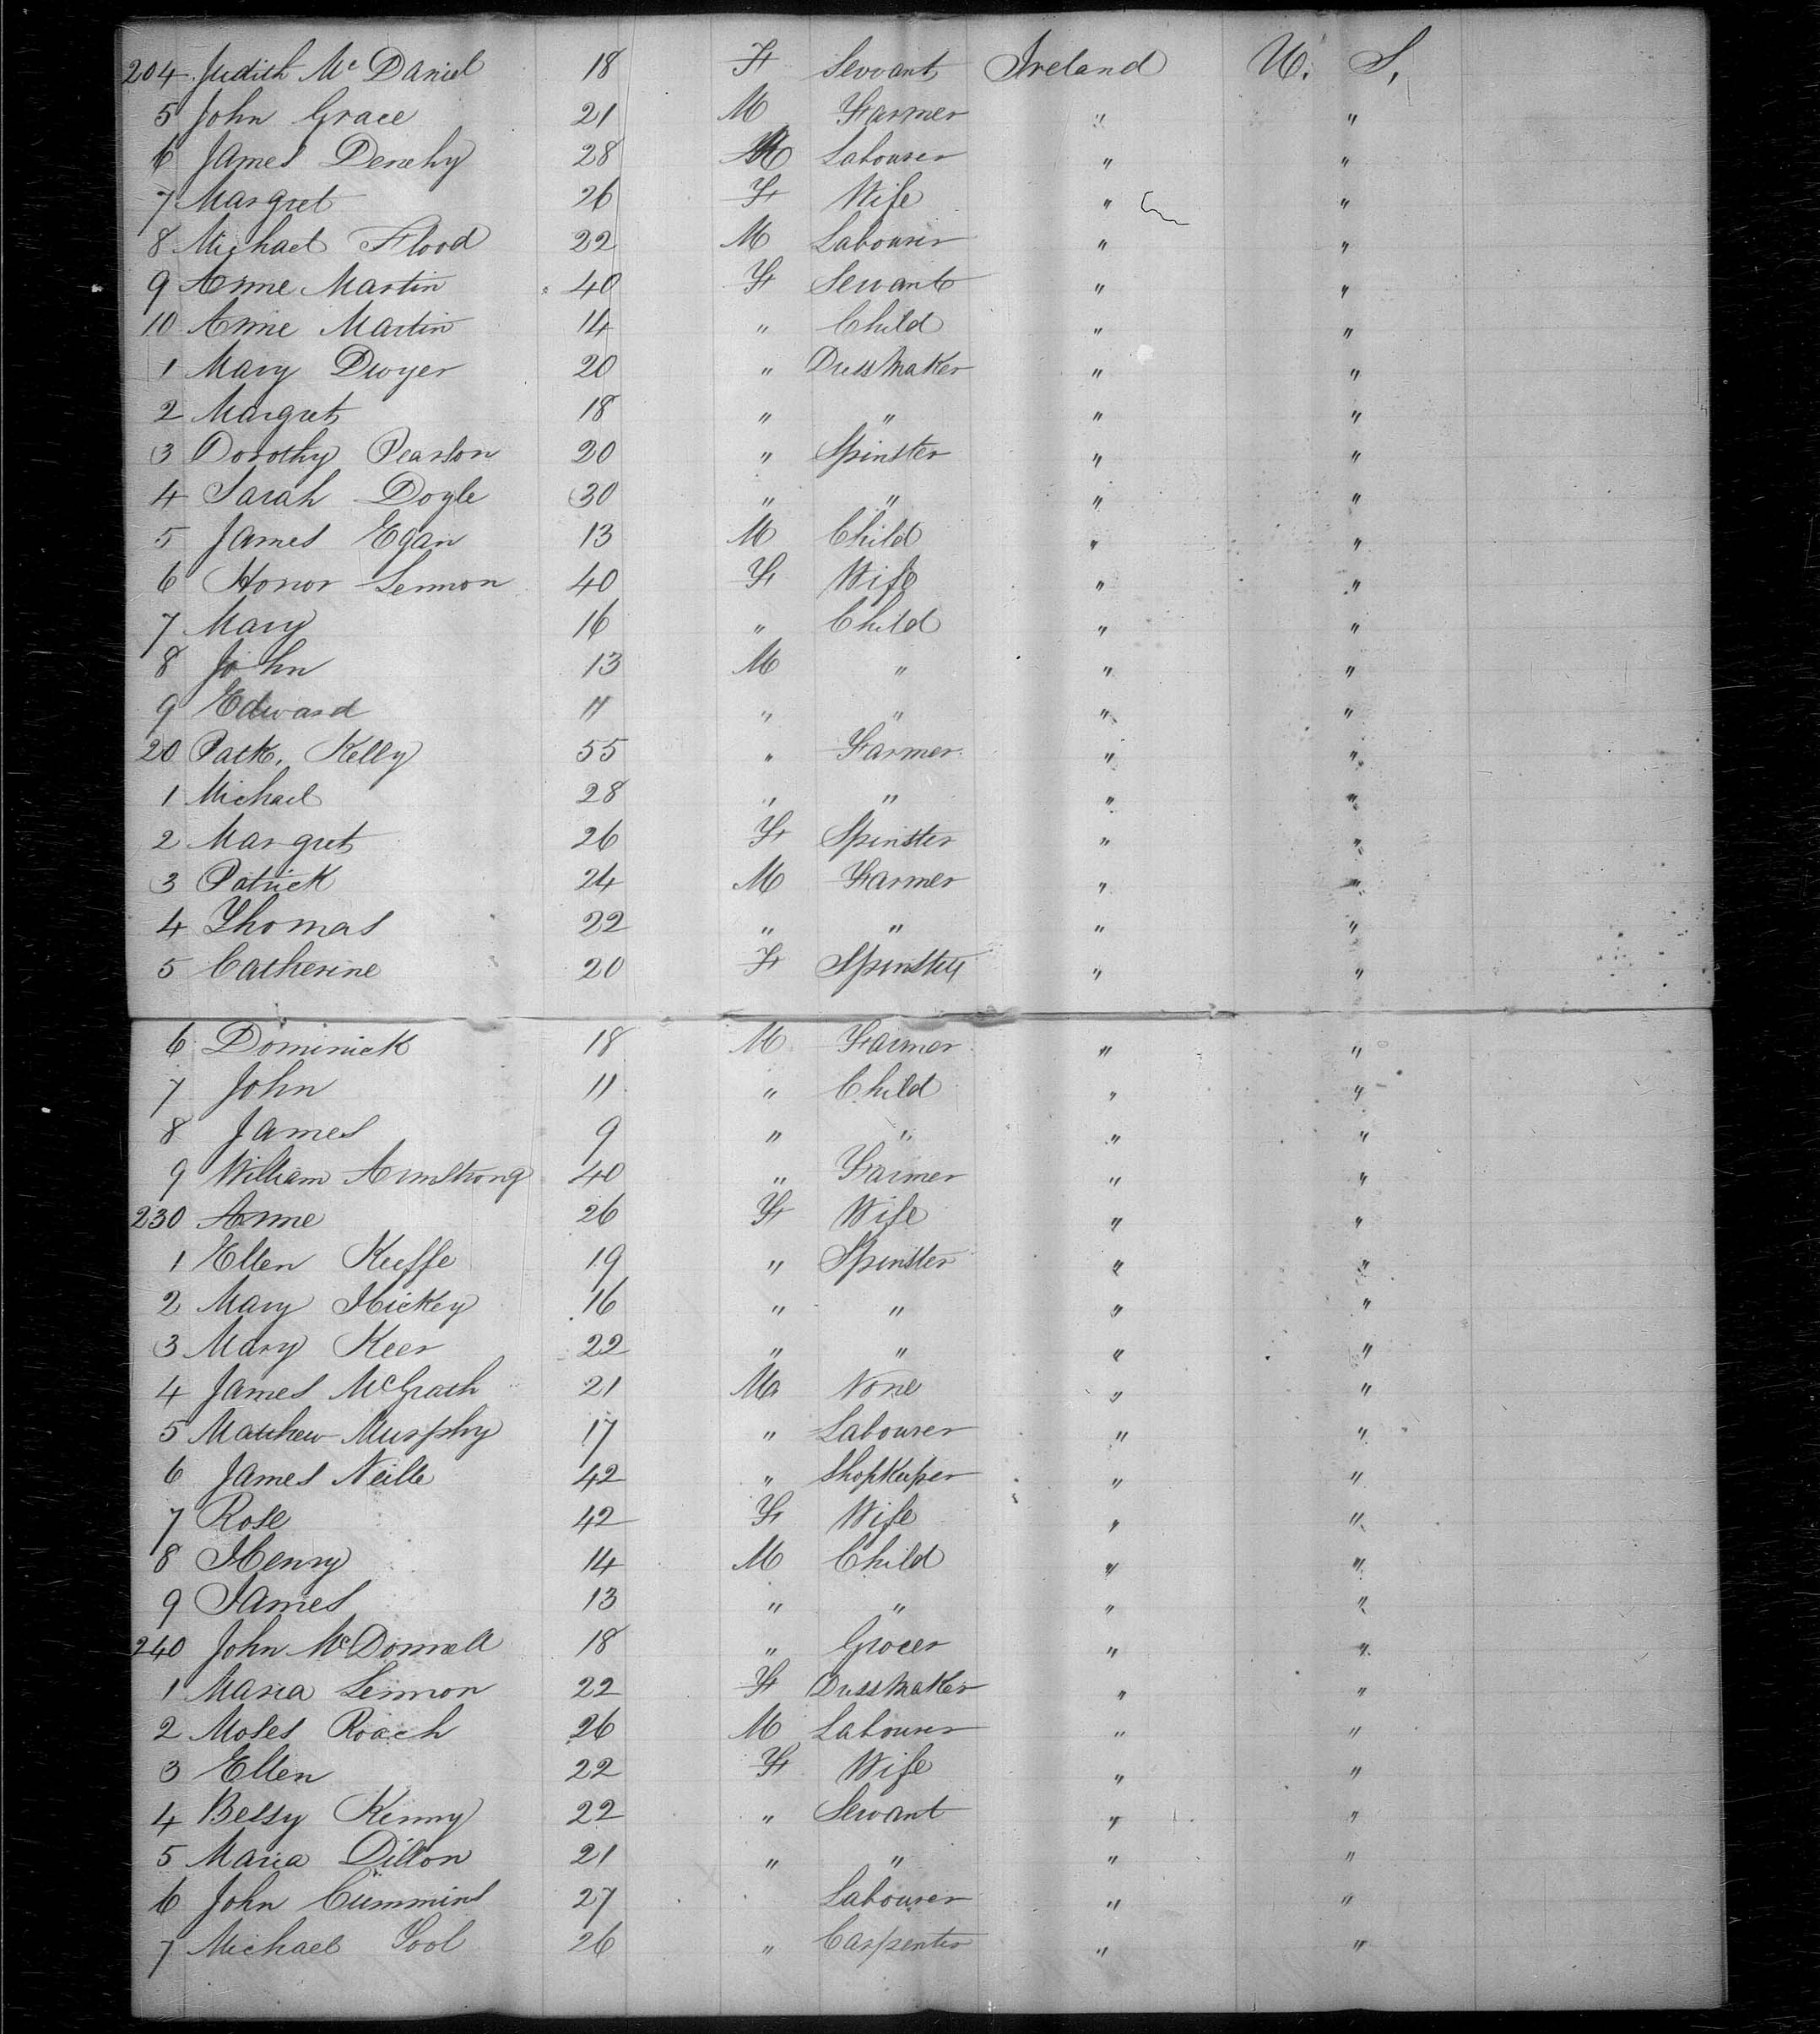 204 Judith Mc Daniel 18 F Servant Ireland U. S,
5 John Grace 21 M Farmer " "
6 James Denehy 28 M Labourer " "
7 Margret 26 F Wife " "
8 Michael Flood 22 M Labourer " "
9 Anne Martin 40 F Servant " "
10 Anne Martin 14 " Child " "
1 Mary Dwyer 20 " DressMaker " "
2 Margret 18 " " " "
3 Dorothy Pearson 20 " Spinster " "
4 Sarah Doyle 30 " " " "
5 James Egan 13 M Child " "
6 Honor Lennon 40 F Wife " "
7 Mary 16 " Child " "
8 John 13 M " " "
9 Edward 11 " " " "
20 Patk. Kelly 55 " Farmer " "
1 Michael 28 " " " "
2 Margret 26 F Spinster " "
3 Patrick 24 M Farmer " "
4 Thomas 22 " " " "
5 Catherine 20 F Spinster " "
6 Dominick 18 M Farmer " "
7 John 11 " Child " "
8 James 9 " " " "
9 William Armstrong 40 " Farmer " "
230 Anne 26 F Wife " "
1 Ellen Keeffe 19 " Spinster " "
2 Mary Hickey 16 " " " "
3 Mary Keer 22 " " " "
4 James McGrath 21 Ma None " "
5 Matthew Murphy 17 " Labourer " "
6 James Neille 42 " Shopkeeper " "
7 Rose 42 F Wife " "
8 Henry 14 M Child " "
9 James 13 " " " "
240 John McDonnell 18 " Grocer " "
1 Maria Lennon 22 F DressMaker " "
2 Moses Roach 26 M Labourer " "
3 Ellen 22 F Wife " "
4 Bessy Kenny 22 " Servant " "
5 Maria Dillon 21 " " " "
6 John Cummins 27 Labourer " "
7 Michael Tool 26 " Carpenter " "